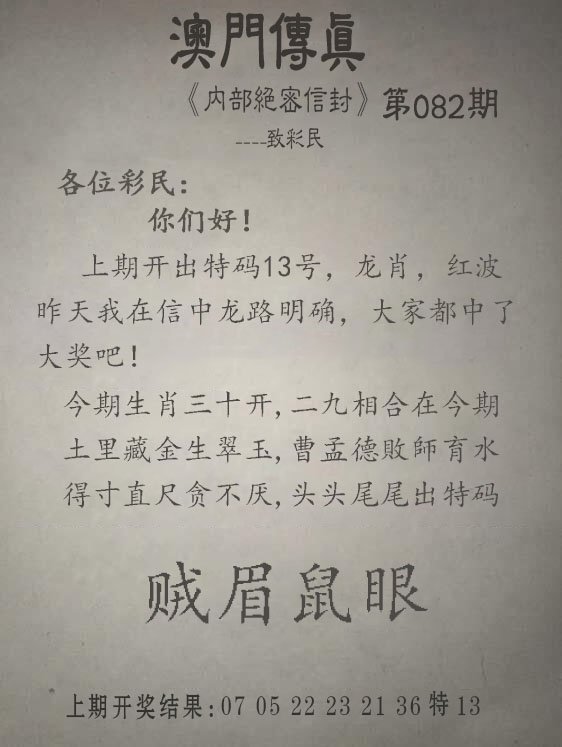 澳門傳眞
《内部絕密信封》第082期
----致彩民
各位彩民:
你们好!
上期开出特码13号，龙肖，红波
昨天我在信中龙路明确，大家都中了
大奖吧!
今期生肖三十开,二九相合在今期
土里藏金生翠玉,曹孟德敗師育水
得寸直尺贪不厌,头头尾尾出特码
贼眉鼠眼
上期开奖结果:07 05 22 23 21 36 特 13